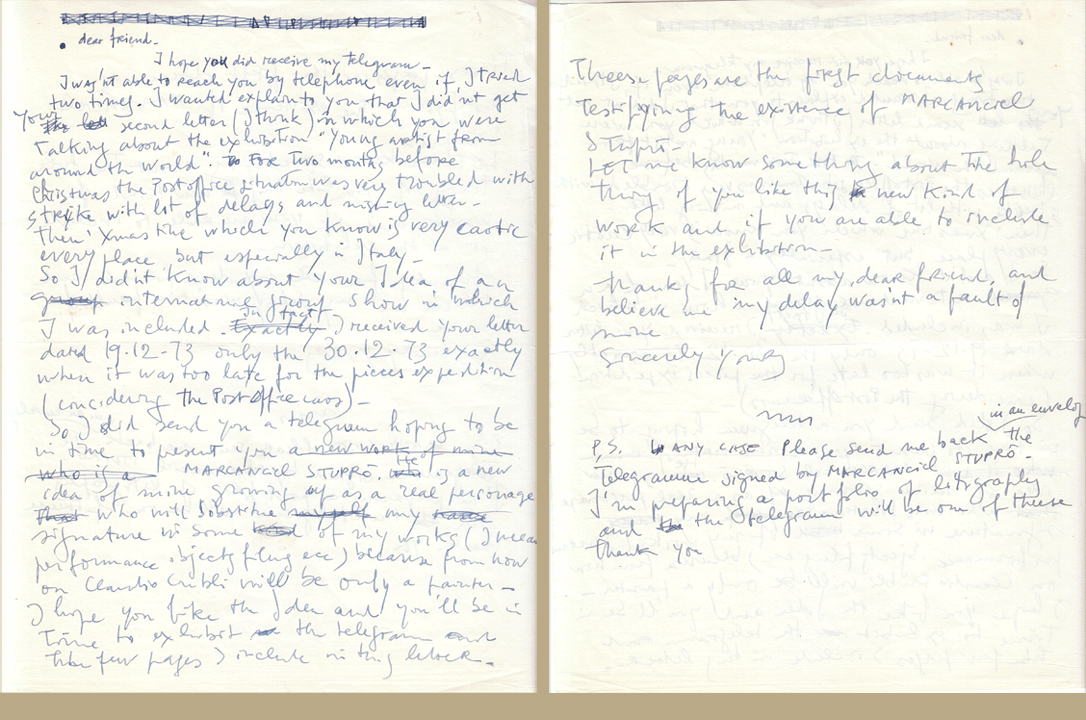 dear friend_
I hope you did receive my telegram_
I was'nt able to reach you by telephone even if I tried
two times. I wanted explain to you that I did'nt get
Your second letter (I think) in which you were
Talking about the exhibition "Young artist from
around the world". For Two months before
Christmas the Post office situation was very troubled with
strike with lot of delays and missing letter_
Then Xmas time which you know is very caotic
every place but especially in Italy_
So I did'nt know about your Idea of an
group international group show in which
I was included. Exactly In fact I received your letter
dated 19.12-73 only the 30.12.73 exactly
when it was too late for the pieces expedition
(considering the Post Office caos)_
So I did send you a telegram hoping to be
in time to present you a new work of mine
who is a MARCANCIEL STUPRŌ. He is a new
idea of mine growing up as a real personage
that who will substitue myself my name
signature in some kind of my works (I mean
performance objects films ecc) because from now
on Claudio Cubli will be only a painter_
I hope you like the Idea and you'll be in
Time to exhibit the telegram and
the few pages I include in this letter_
Theese pages are the first documents
Testifying the existence of MARCANCIEL
Stuprō_
LET me know something about The hole
thing if you like this new kind of
work and if you are able to include
it in the exhibition_
thanks for all my dear friend, and
believe me my delay wasn't a fault of
mine
Sincerely Yours
in an envelop
P.S. IN ANY CASE Please send me back the
Telegramme signed by MARCANCIEL STUPRŌ_
I'm preparing a portfolio of litigraphy
and the telegram will be one of theese
thank you